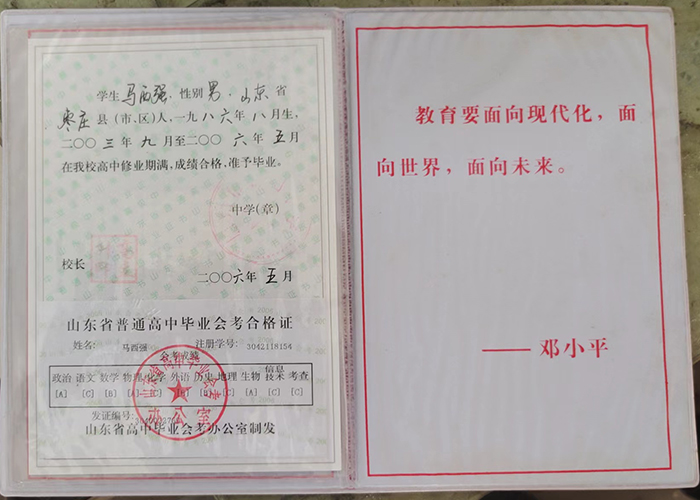 学生 马西强，性别 男，山东 省
枣庄 县（市、区）人，一九八六年八月生，
二〇〇三年九月至二〇〇六年五月
在我校高中修业期满，成绩合格，准予毕业。
中学（章）
校长
二〇〇六年 五月
山东省普通高中毕业会考合格证
姓名： 马西强 注册学号： 3042118154
会考成绩
政治 语文 数学 物理 化学 外语 历史 地理 生物 信息技术 考查
[A] [C] [B] [A] [C] [C]
发证编号：
山东省高中毕业会考办公室制发
办公室
教育要面向现代化，面
向世界，面向未来。
——邓小平